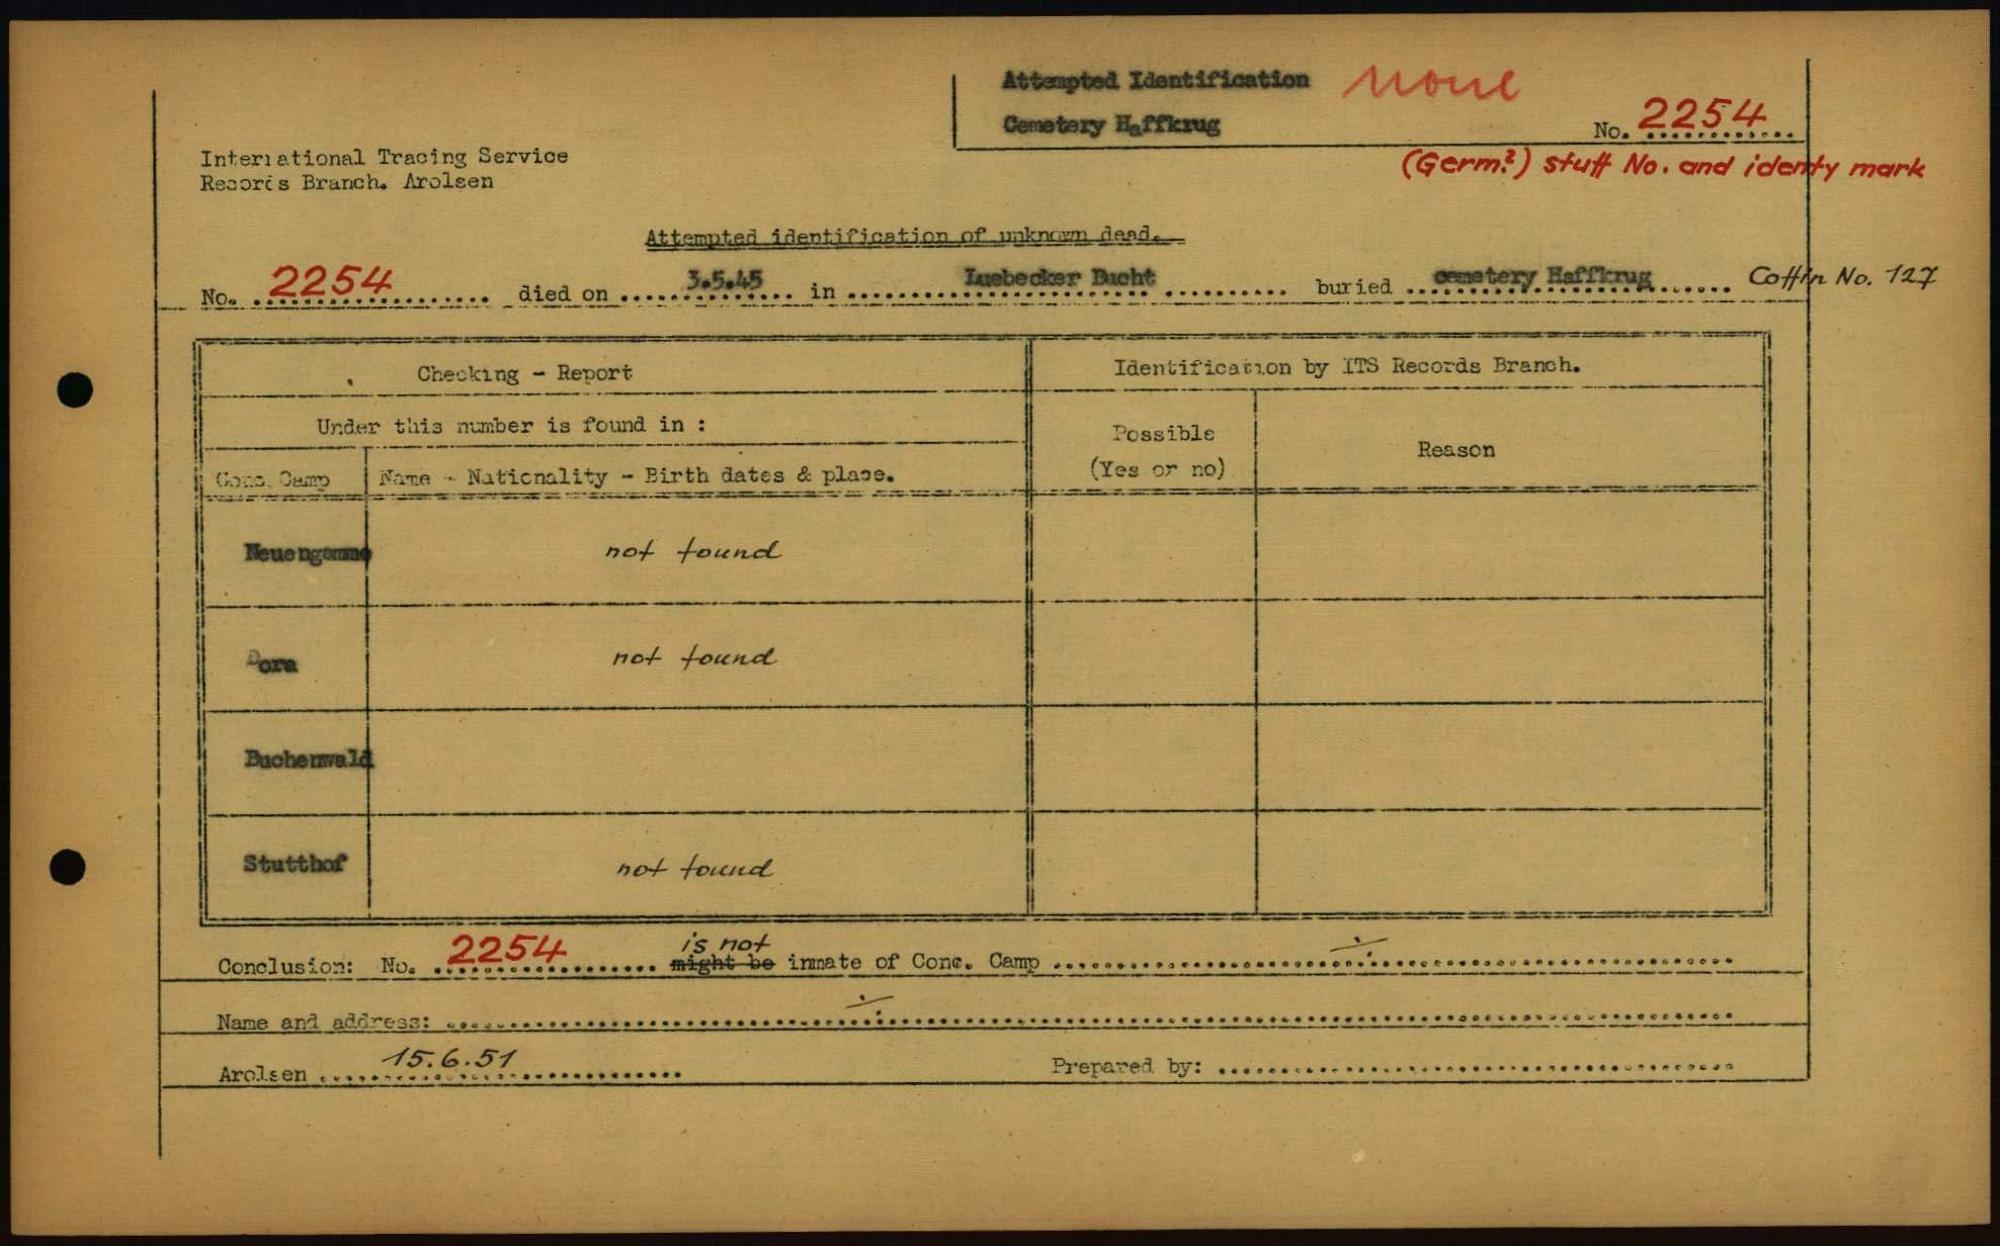 Attempted Identification none
Cemetery Haffkrug
No. 2254
International Tracing Service
Records Branch. Arolsen
(Germ.?) stuff No. and identy mark
Attempted identification of unknown dead.
No. 2254 died on 3.5.45 in Luebecker Bucht buried cemetery Haffkrug Coffin No. 127
Checking - Report
Identification by ITS Records Branch.
Under this number is found in :
Possible
(Yes or no)
Reason
Conc. Camp
Name - Nationality - Birth dates & place.
Neuengamme not found
Dora not found
Buchenwald
Stutthof not found
is not
Conclusion: No. 2254 might be inmate of Conc. Camp ./.
Name and address: ./.
Arolsen 15.6.51 Prepared by: